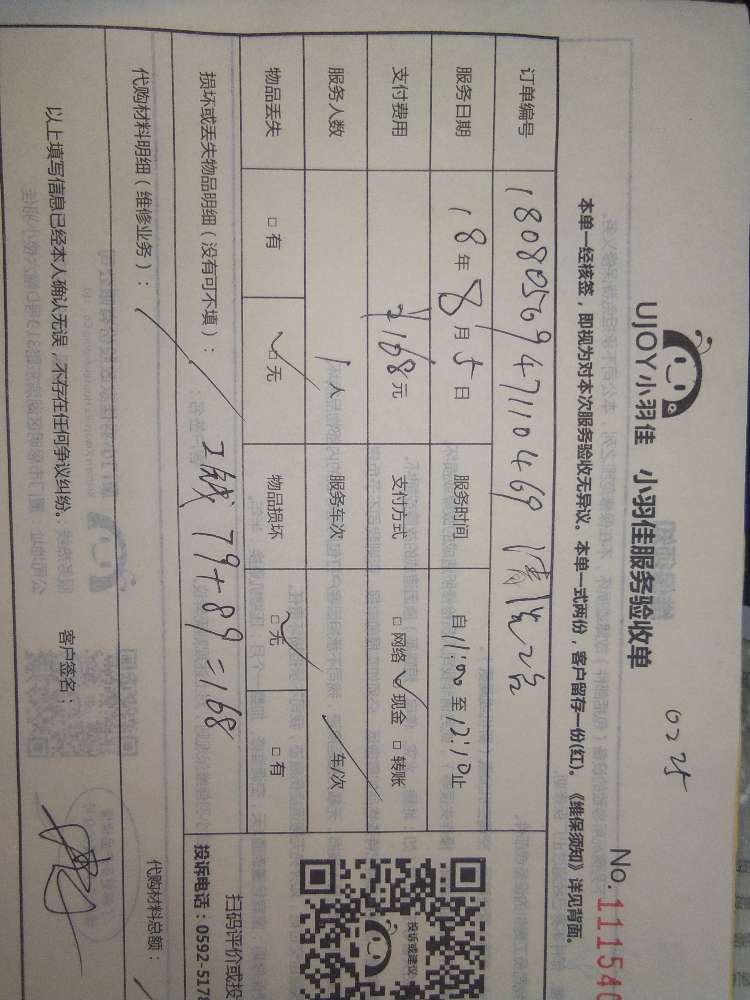 0225
UJOY小羽佳 小羽佳服务验收单
No.111540
本单一经核签，即视为对本次服务验收无异议。本单一式两份，客户留存一份(红)。《维保须知》详见背面。
订单编号 1808056947110469 清洗2台
服务日期 18年8月5日 服务时间 自11:00至12:10止
支付费用 168元 支付方式 □网络 ✓现金 □转账
服务人数 1人 服务车次 / 车/次
物品丢失 □有 ✓□无 物品损坏 ✓□无 □有
损坏或丢失物品明细（没有可不填）： 工钱 79+89=168
代购材料明细（维修业务）： /
代购材料总额：
以上填写信息已经本人确认无误，不存在任何争议纠纷。 客户签名：
投诉或建议
扫码评价或投
投诉电话：0592-5178